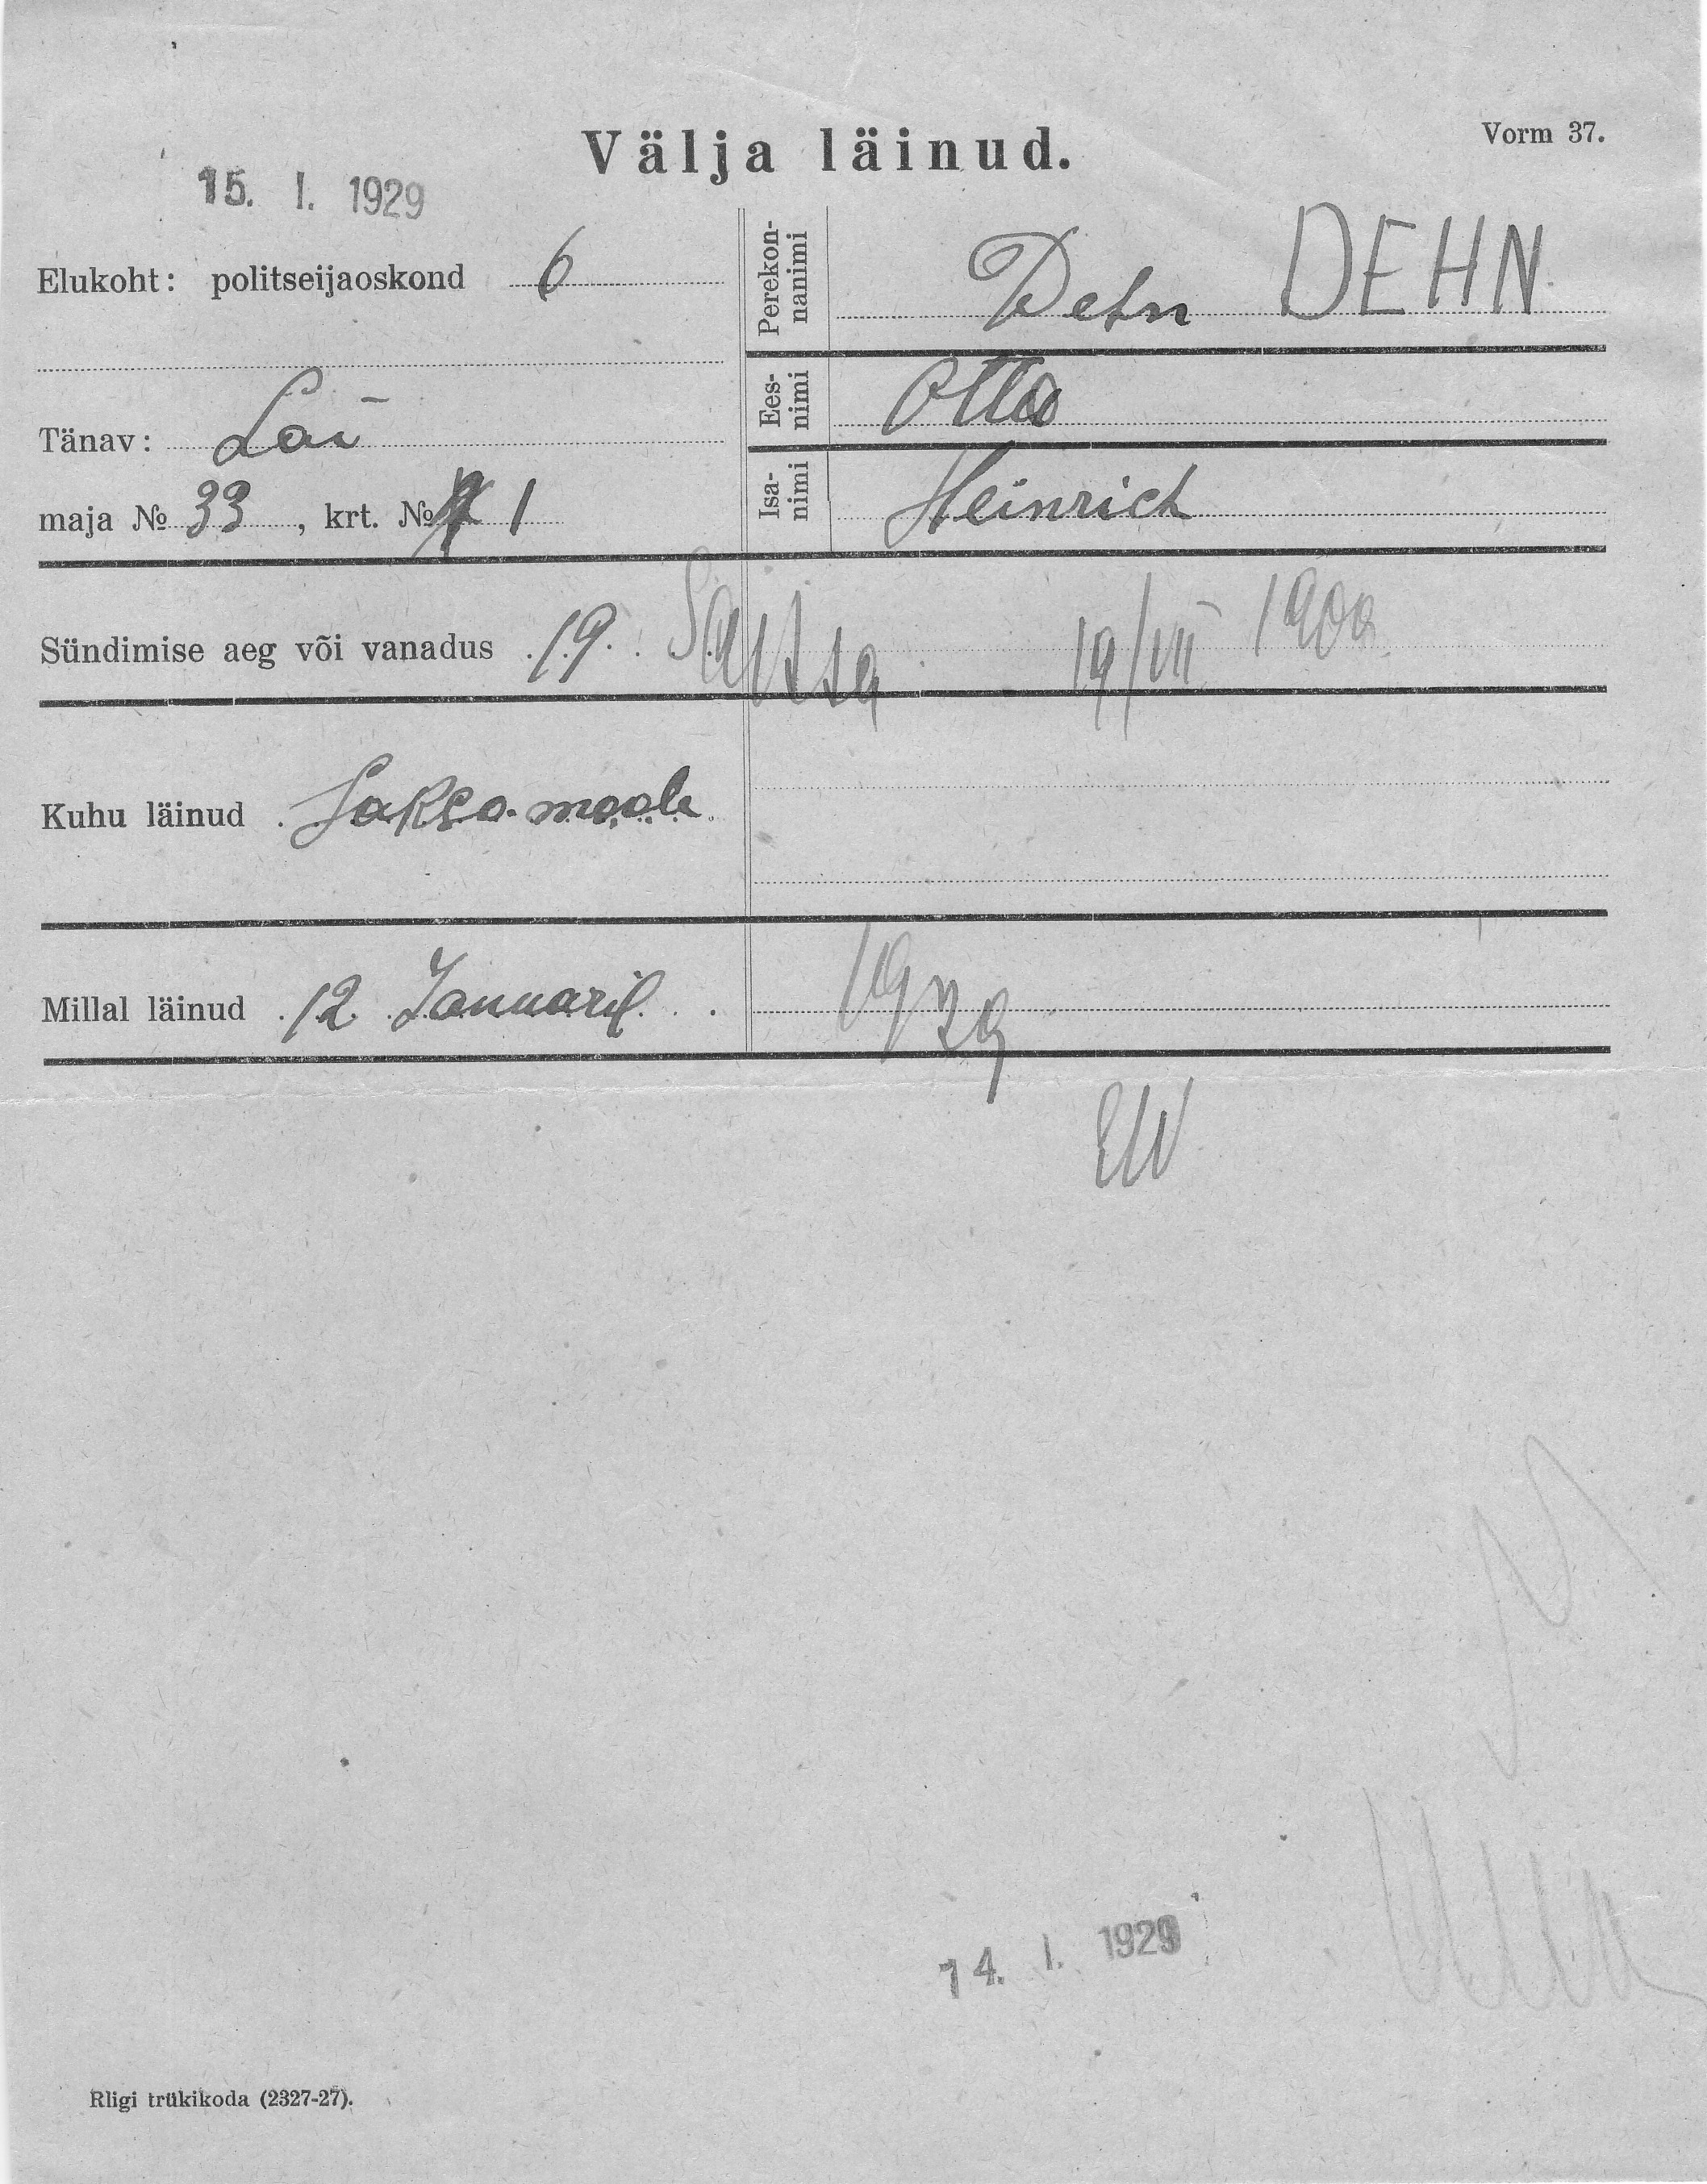 Välja läinud.
Vorm 37.
15. I. 1929
Elukoht: politseijaoskond 6
Tänav: Lai
maja № 33, krt. № 1
Perekon-
nanimi
Dehn DEHN
Ees-
nimi
Otto
Isa-
nimi
Heinrich
Sündimise aeg või vanadus 19. 19/VII 1900
Kuhu läinud Saksa-maale
Millal läinud 12 Januaril 1929
EW
14. I. 1929
Riigi trükikoda (2327-27).